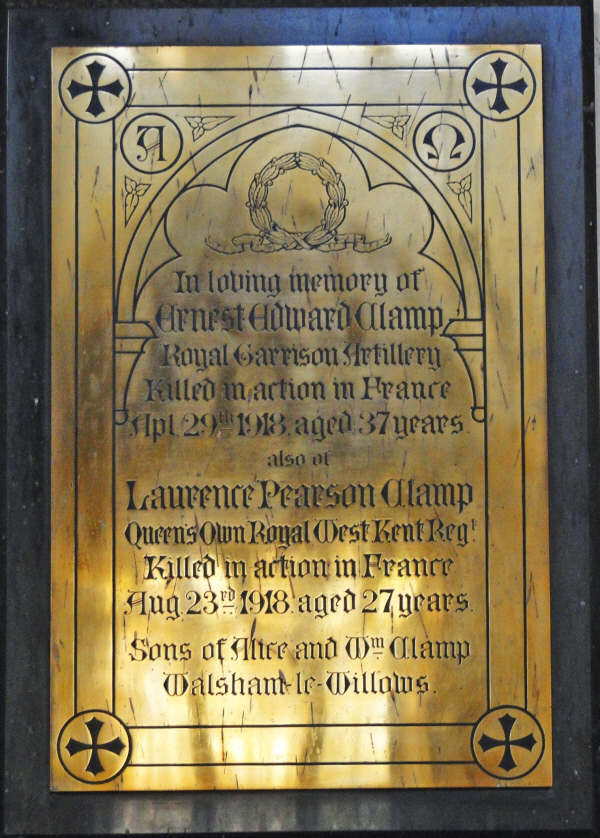 Α Ω
In loving memory of
Ernest Edward Clamp
Royal Garrison Artillery
Killed in action in France
Apl. 29th 1918. aged 37 years.
also of
Laurence Pearson Clamp
Queen's Own Royal West Kent Regt.
Killed in action in France
Aug. 23rd 1918. aged 27 years.
Sons of Alice and Wm Clamp
Walsham-le-Willows.